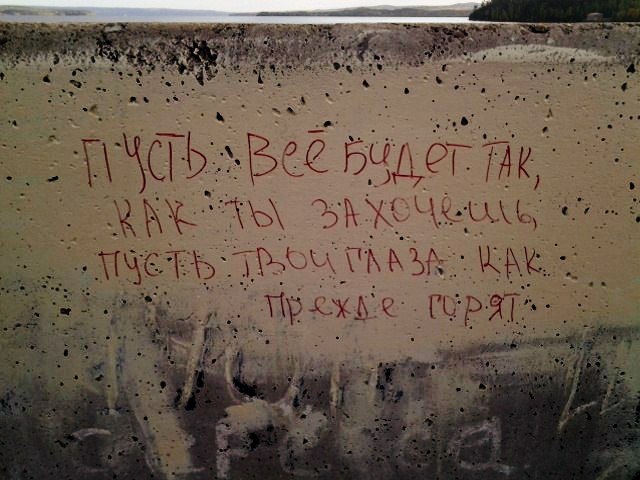 Пусть всё будет так,
как ты захочешь,
пусть твои глаза как
прежде горят